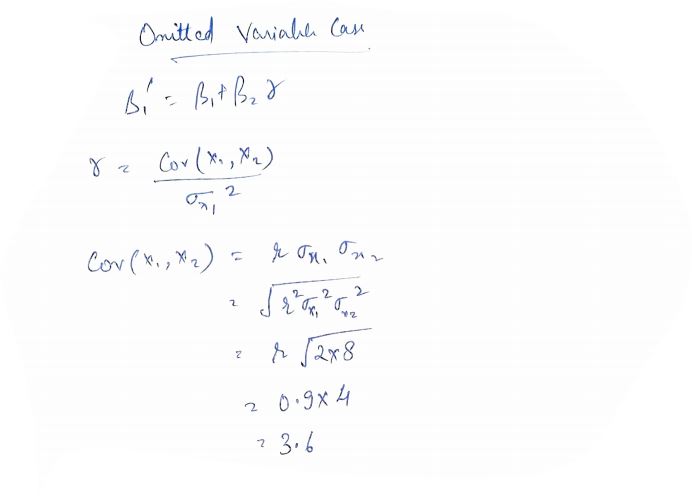 Omitted Variable Case
β₁' = β₁ + β₂ γ
γ = Cov(x₁, x₂) / σx₁²
Cov(x₁, x₂) = r σx₁ σx₂
= √(r² σx₁² σx₂²)
= r √(2×8)
= 0.9 × 4
= 3.6